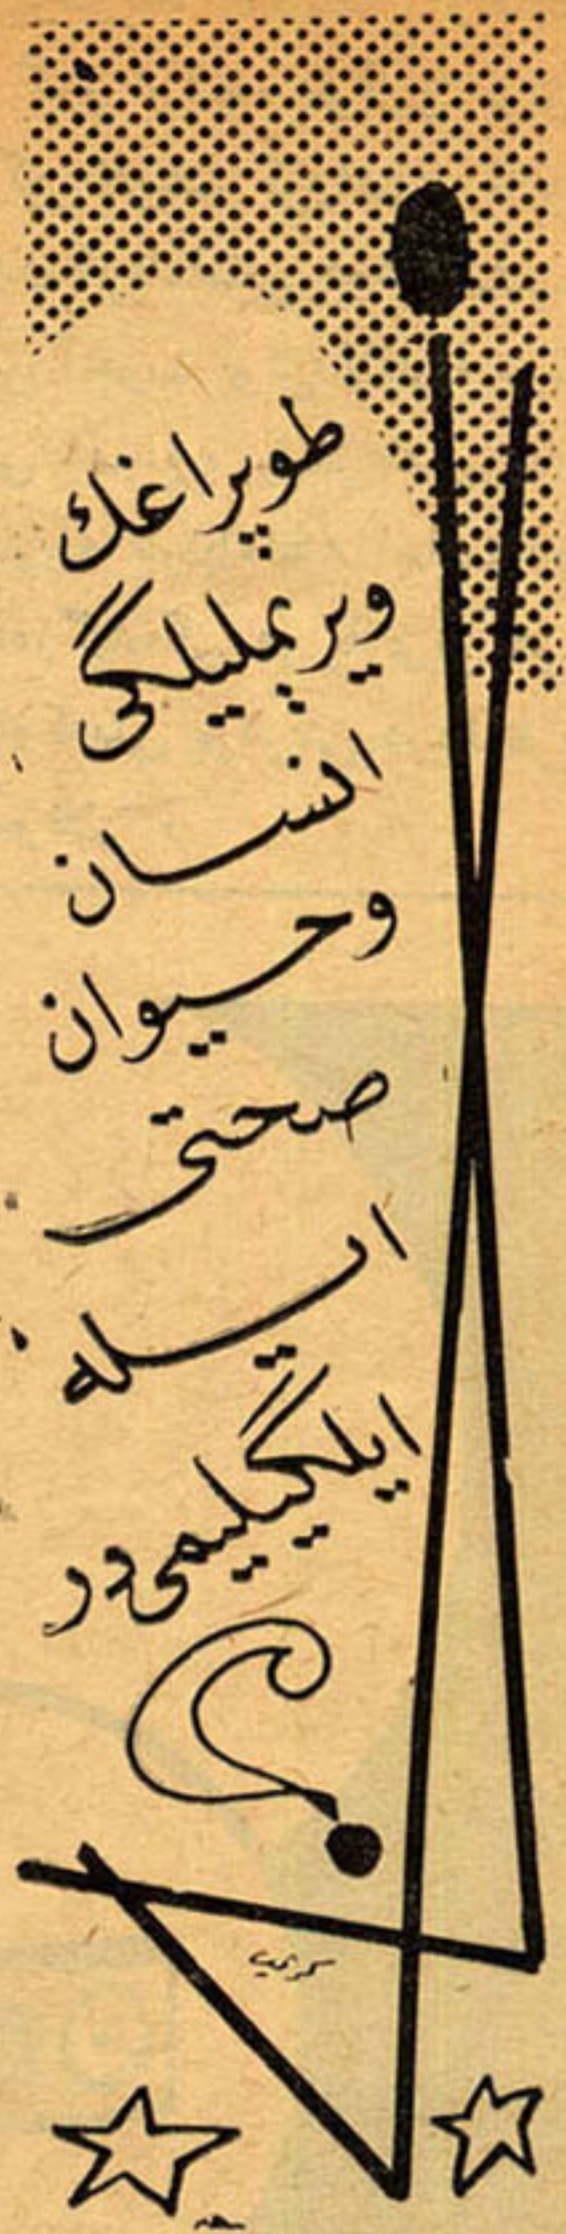 طوپراغڭ
ویریملیلگی
انسان
وحیوان
صحتی
ایله
ایلگیلیمی در
؟